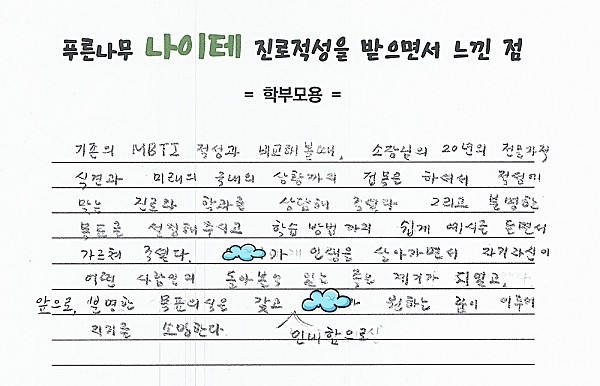 푸른나무 나이테 진로적성을 받으면서 느낀 점
= 학부모용 =
기존의 MBTI 적성과 비교해 볼때, 소장님의 20년의 전문가적
식견과 미래의 국내의 상황까지 접목은 하셔서 적성에
맞는 진로와 학과를 상담해 주셨다. 그리고 분명한
목표를 설정해주시고 학습 방법까지 쉽게 예시를 들면서
가르쳐 주셨다. 인생을 살아가면서 자기자신이
어떤 사람인지 돌아볼수 있는 좋은 계기가 되었고,
앞으로, 분명한 목표의식을 갖고 원하는 꿈이 이루어
지기를 소망한다. 인내함으로